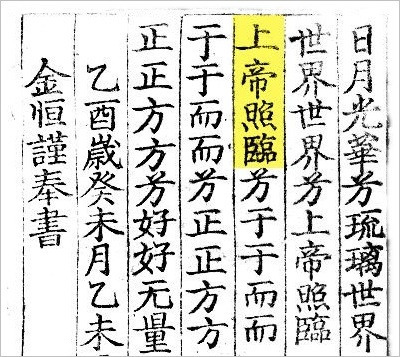 日月光華兮琉璃世界
世界世界兮上帝照臨
上帝照臨兮于于而而
于于而而兮正正方方
正正方方兮好好无量
乙酉歲癸未月乙未
金恒謹奉書